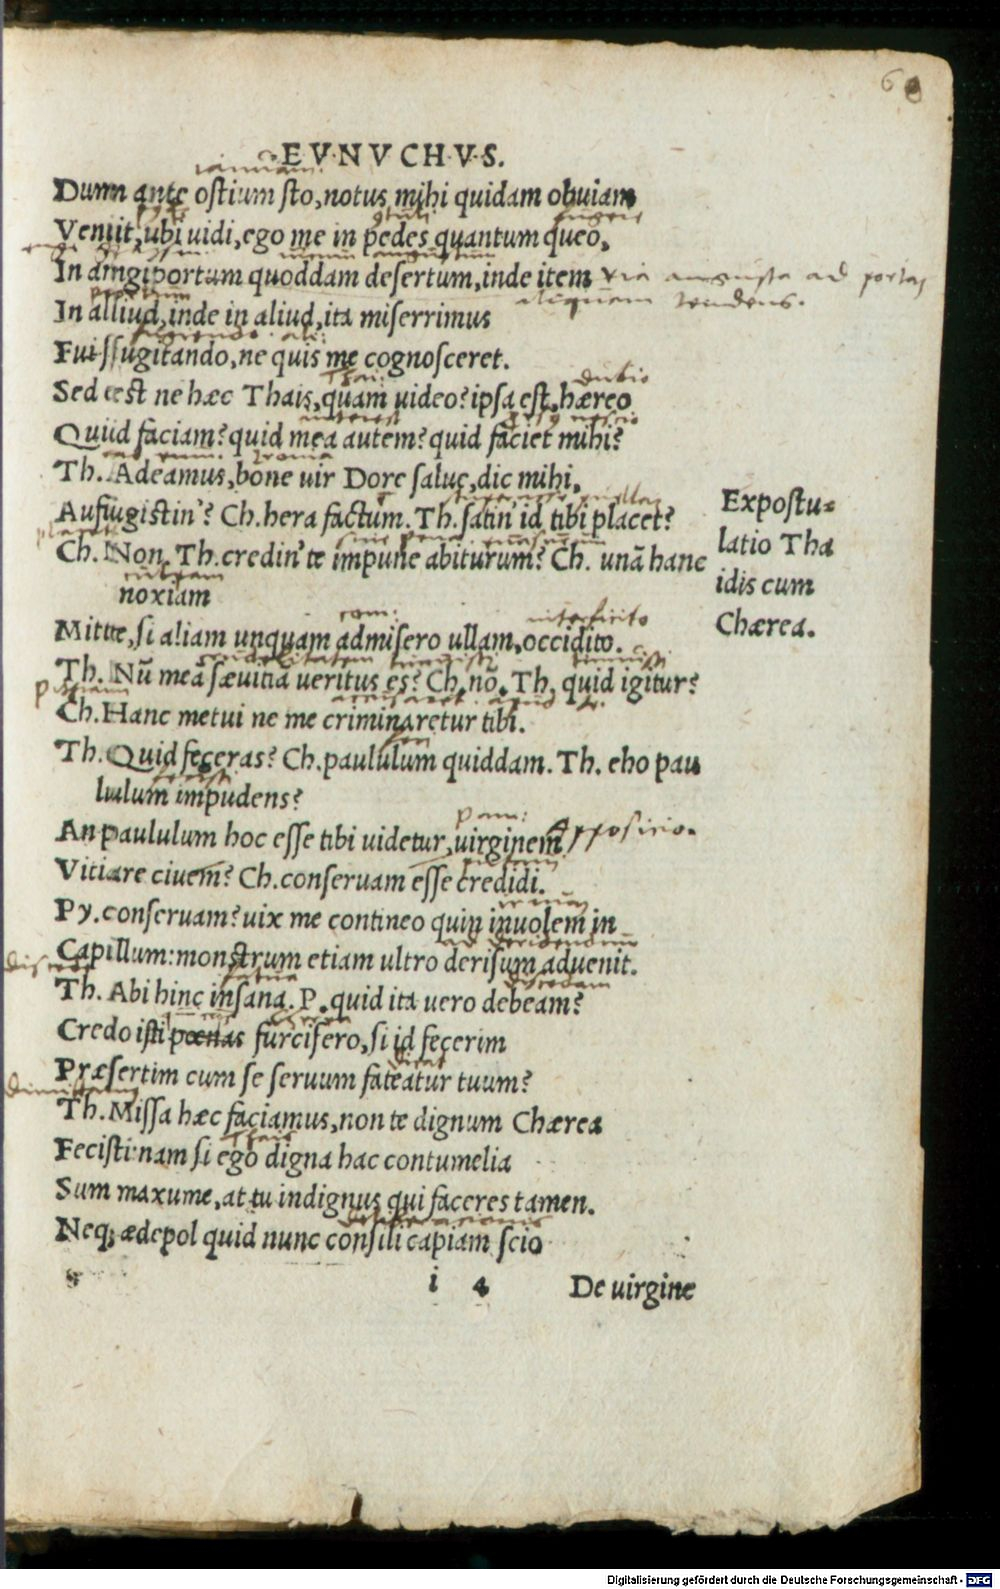 60
EVNVCHVS.
ianuam.
Dum ante ostium sto, notus mihi quidam obuiam
Venit, ubi uidi, ego me in pedes quantum queo,
In angiportum quoddam desertum, inde item via angusta ad portam
aliquam tendens.
In aliud, inde in aliud, ita miserrimus
Fui fugitando, ne quis me cognosceret.
Thai: dubito
Sed est ne hæc Thais, quam uideo? ipsa est, hæreo
interest
Quid faciam? quid mea autem? quid faciet mihi?
Th. Adeamus, bone uir Dore salue, dic mihi,
Aufugistin'? Ch. hera factum. Th. satin' id tibi placet?
Ch. Non. Th. credin' te impune abiturum? Ch. unā hanc
noxiam
interficito
Mitte, si aliam unquam admisero ullam, occidito.
crudelitatem timuisti timuisti
Th. Nū meā sæuitiā ueritus es? Ch. nō. Th. quid igitur?
Ch. Hanc metui ne me criminaretur tibi.
Th. Quid feceras? Ch. paululum quiddam. Th. eho pau
lulum impudens?
Expostu=
latio Tha
idis cum
Chærea.
pam:
An paululum hoc esse tibi uidetur, uirginem Appositio.
Vitiare ciuem? Ch. conseruam esse credidi.
Py. conseruam? uix me contineo quin inuolem in
Capillum: monstrum etiam ultro derisum aduenit.
Th. Abi hinc insana. P. quid ita uero debeam?
Credo isti pœnas furcifero, si id fecerim
Præsertim cum se seruum fateatur tuum?
Th. Missa hæc faciamus, non te dignum Chærea
Thais
Fecisti: nam si ego digna hac contumelia
Sum maxume, at tu indignus qui faceres tamen.
Neq; ædepol quid nunc consili capiam scio
i 4 De uirgine
Digitalisierung gefördert durch die Deutsche Forschungsgemeinschaft - DFG